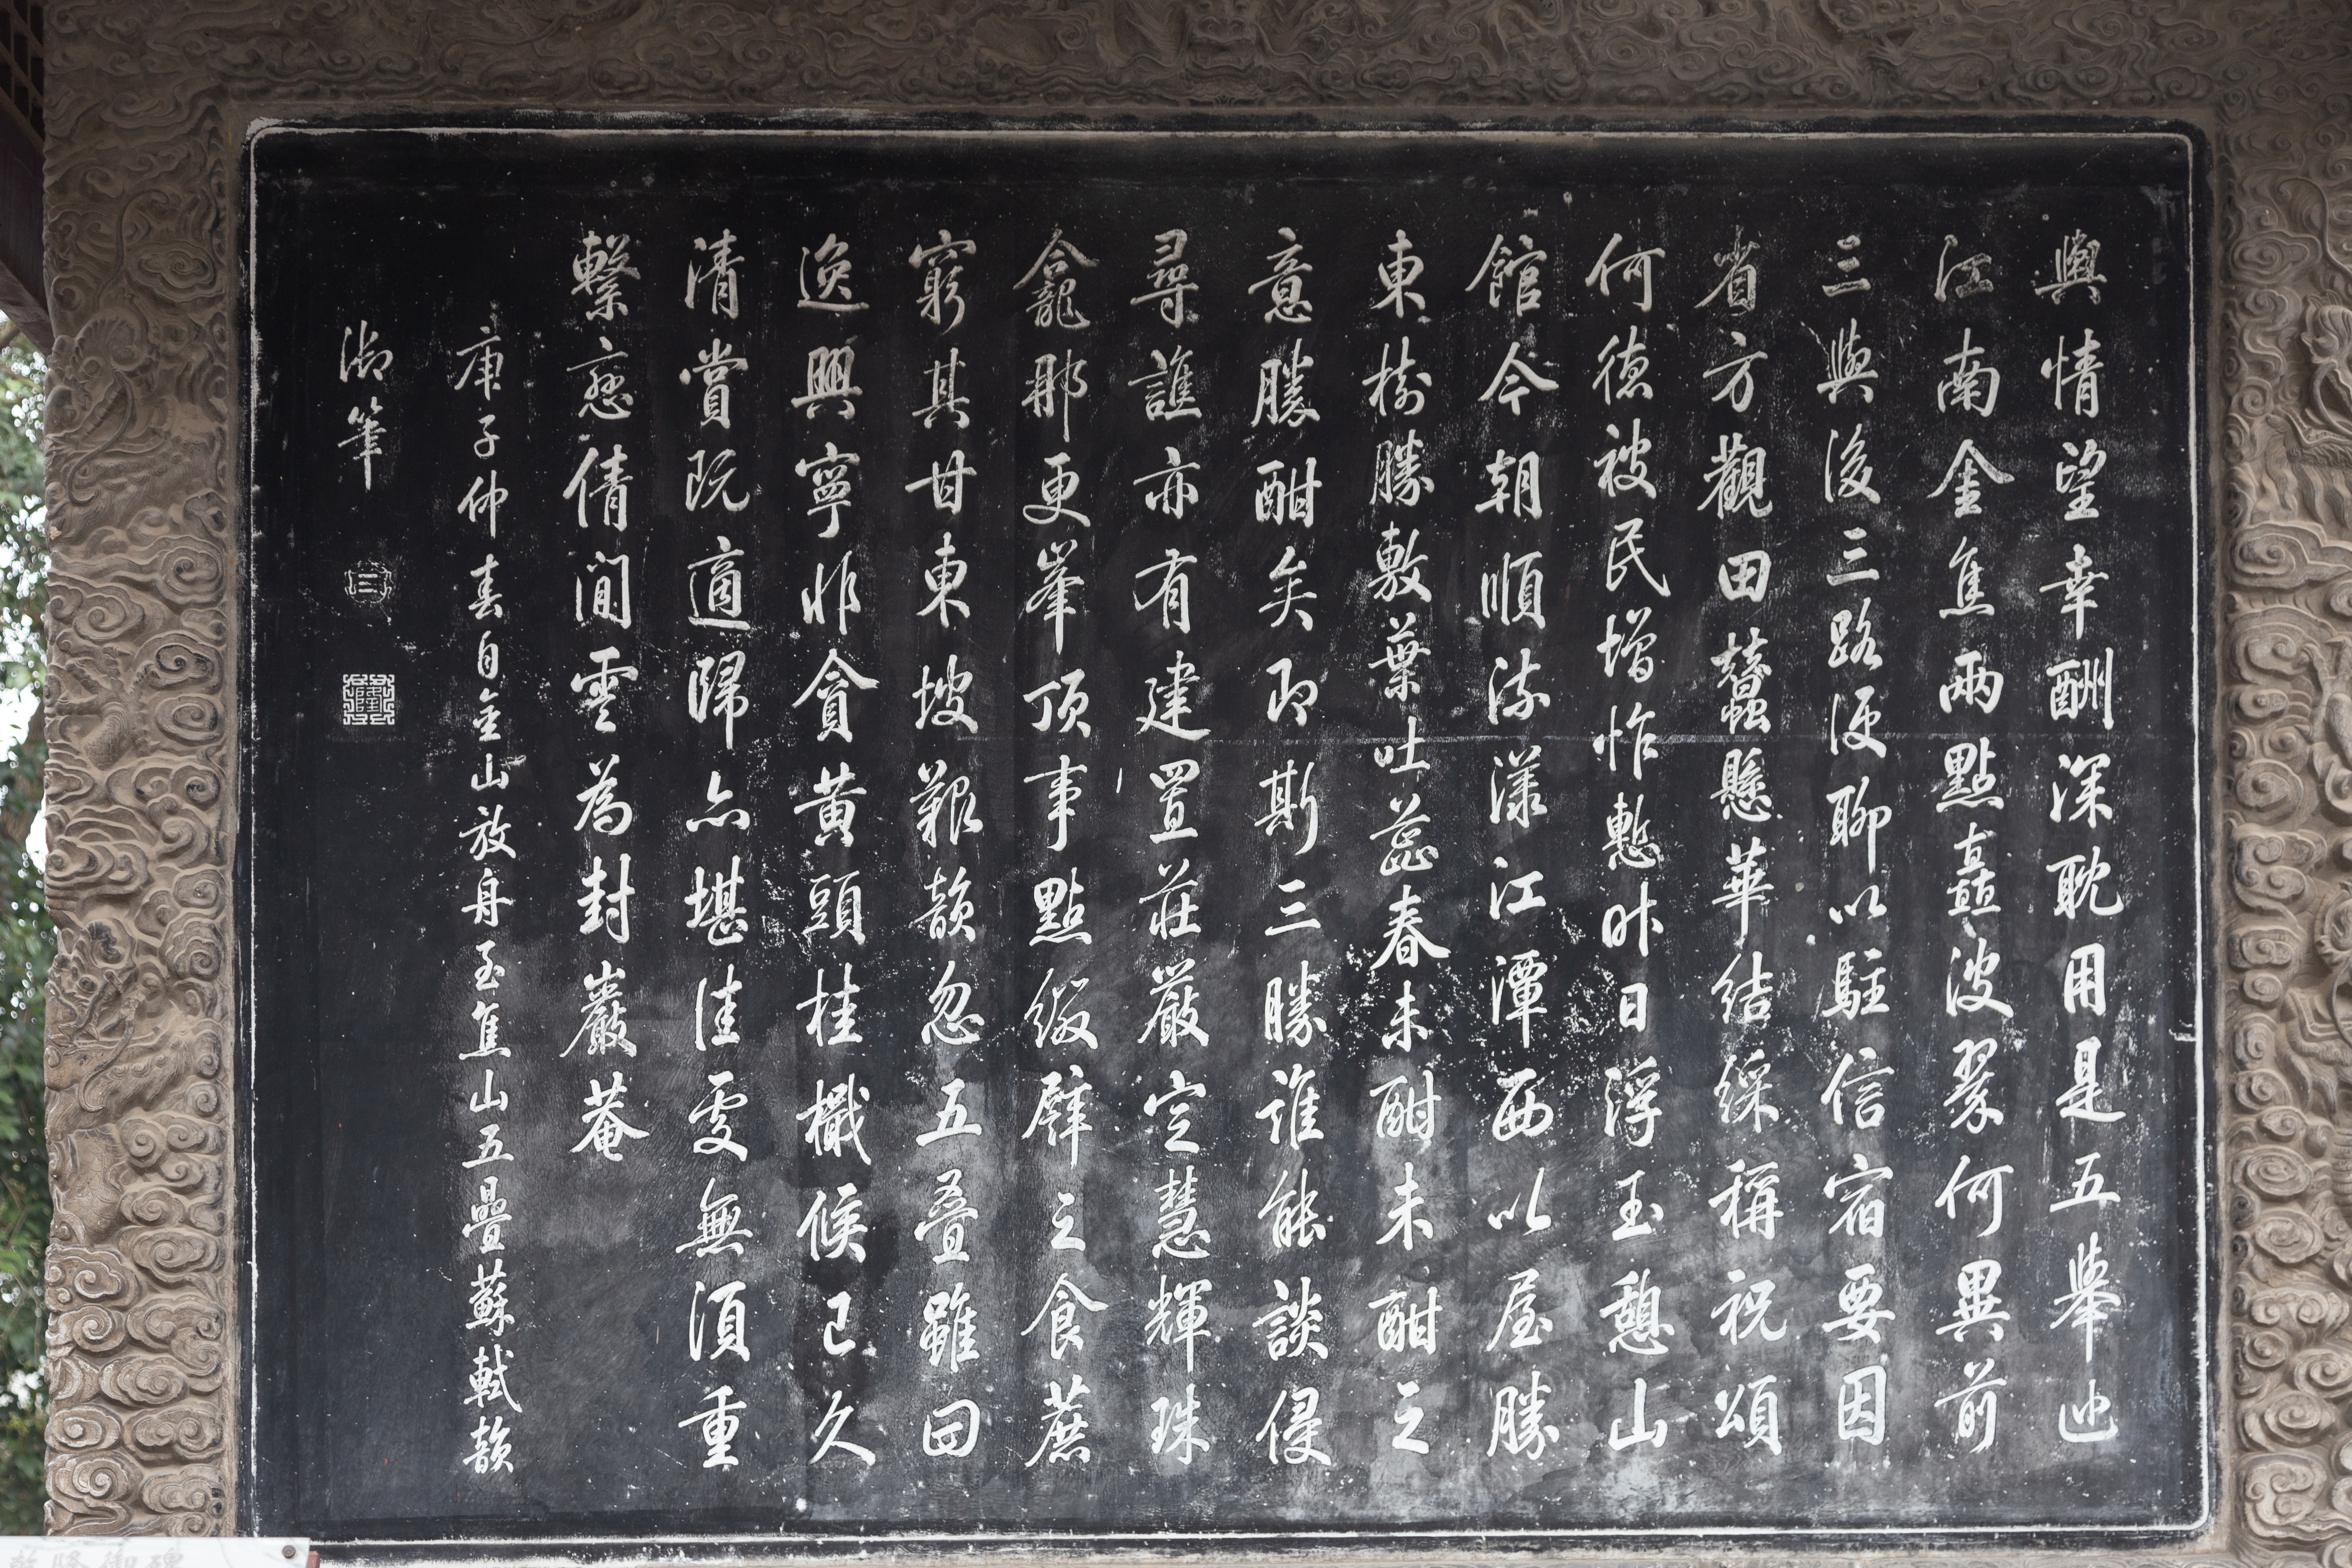 輿情望幸酬深耽用是五舉迆
江南金焦兩點矗波翠何異前
三與後三路便聊以駐信宿要因
省方觀田蠶懸華結綵稱祝頌
何德被民增怍慙昨日浮玉憩山
館今朝順流漾江潭西以屋勝
東樹勝敷葉吐蕊春未酣未酣之
意勝酣矣即斯三勝誰能談侵
尋譙亦有建置莊嚴定慧輝珠
龕那更峯頂事點綴辟之食蔗
窮其甘東坡艱韻忽五疊雖曰
逸興寧非貪黃頭桂檝候已久
清賞既適歸亦堪佳處無須重
繫戀倩閒雲為封巖菴
庚子仲春自金山放舟至焦山五疊蘇軾韻
御筆
乾隆御碑